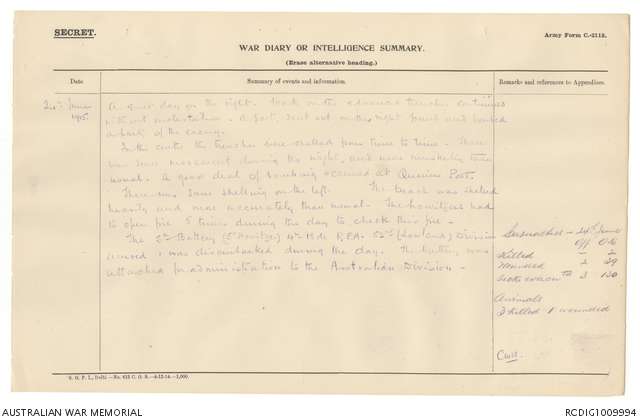 SECRET.
Army Form C.-2118.
WAR DIARY OR INTELLIGENCE SUMMARY.
(Erase alternative heading.)
Date
Summary of events and information.
Remarks and references to Appendices.
24th June
1915.
A quiet day on the right. Work on the advanced trench continued
without molestation. A party sent out on the right found and bombed
a party of the enemy.
In the centre the trenches were shelled from time to time. There
was some movement during the night, and more musketry than
usual. A good deal of bombing occurred at Quinn's Post.
There was some shelling on the left. The beach was shelled
heavily and more accurately than usual. The howitzers had
to open fire 5 times during the day to check this fire.
The 5th Battery (5" Howitzer) 4th Bde R.F.A. 52nd (Lowland) Division
arrived & was disembarked during the day. The battery was
attached for administration to the Australian Division.
Casualties - 24th June
Off O.R.
Killed - 2
Wounded 2 29
Sick evacntd 3 130
Animals
2 killed 1 wounded
S. G. P. I., Delhi—No. 615 C. G. S.—4-12-14—1,000.
AUSTRALIAN WAR MEMORIAL
RCDIG1009994